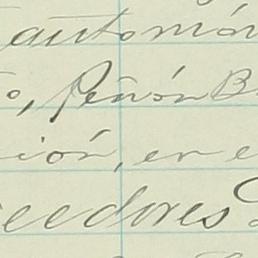 autómón
o, Peñón B
ión, en e
eedores